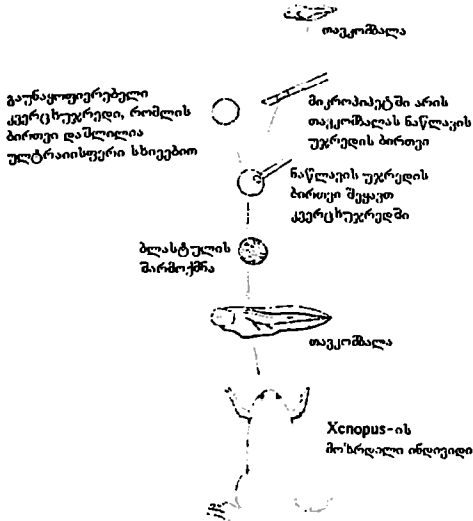 თავკომბალა
გაუნაყოფიერებელი
კვერცხუჯრედი, რომლის
ბირთვი დაშლილია
ულტრაიისფერი სხივებით
მიკროპიპეტში არის
თავკომბალას ნაწლავის
უჯრედის ბირთვი
ნაწლავის უჯრედის
ბირთვი შეყავთ
კვერცხუჯრედში
ბლასტულის
წარმოქმნა
თავკომბალა
Xenopus-ის
მოზრდილი ინდივიდი